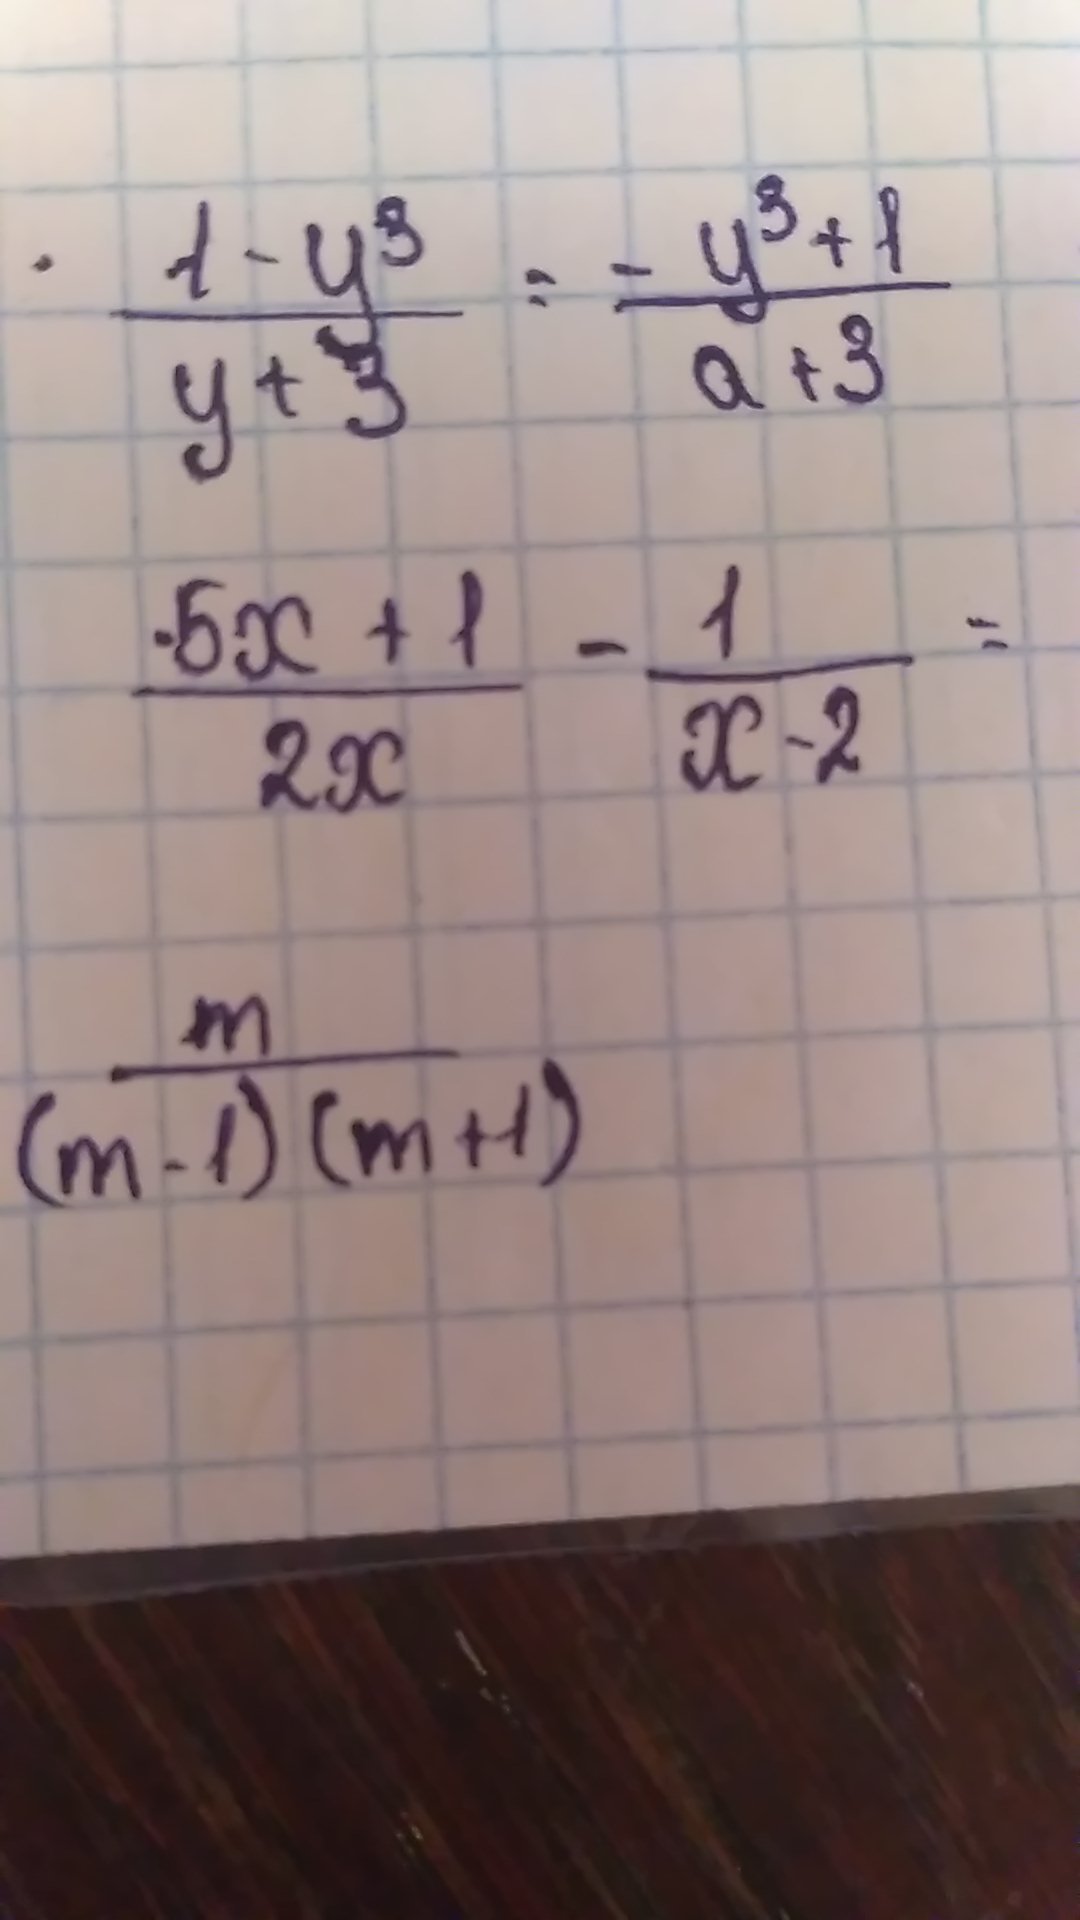 1 - y³ / y + 3 = - y³ + 1 / a + 3
5x + 1 / 2x - 1 / x - 2 =
m / (m - 1) (m + 1)